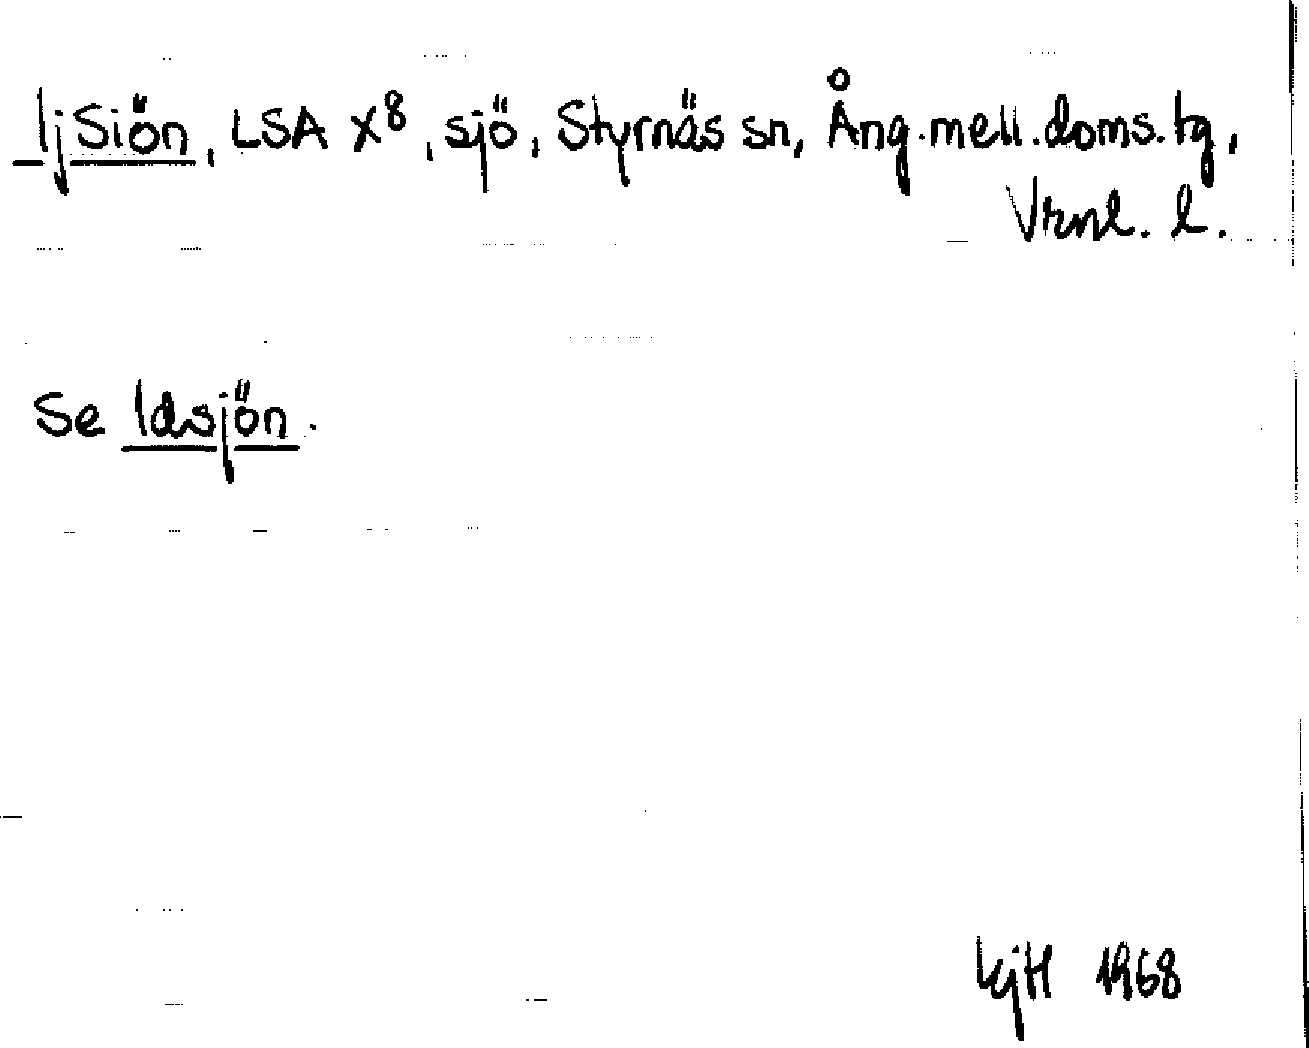 IjSiön, LSA X8, sjö, Styrnäs sn, Ång.mell.doms.tg,
Vrnl. l.
Se Idsjön.
1968